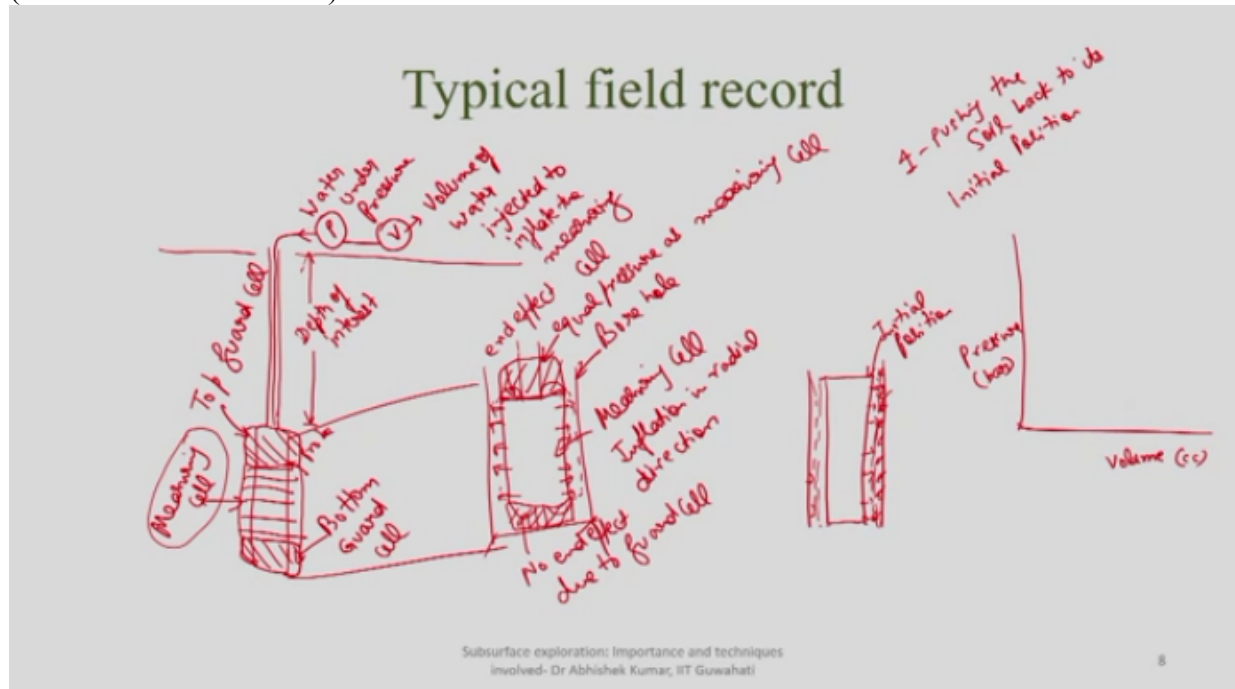 Typical field record
Water
under
Pressure
P
V
Volume of
water
injected to
inflate the
measuring
cell
Top guard cell
Depth of
interest
Measuring
cell
Probe
Bottom
Guard
cell
end effect
equal pressure as measuring cell
Bore hole
Measuring cell
Inflation in radial
direction
No end effect
due to guard cell
Initial
Position
1 - Pushing the
Soil back to its
Initial Position
Pressure
Volume (cc)
Subsurface exploration: Importance and techniques
involved- Dr Abhishek Kumar, IIT Guwahati
8